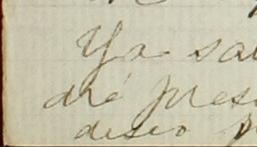 Ya sa
dré pres
deseo